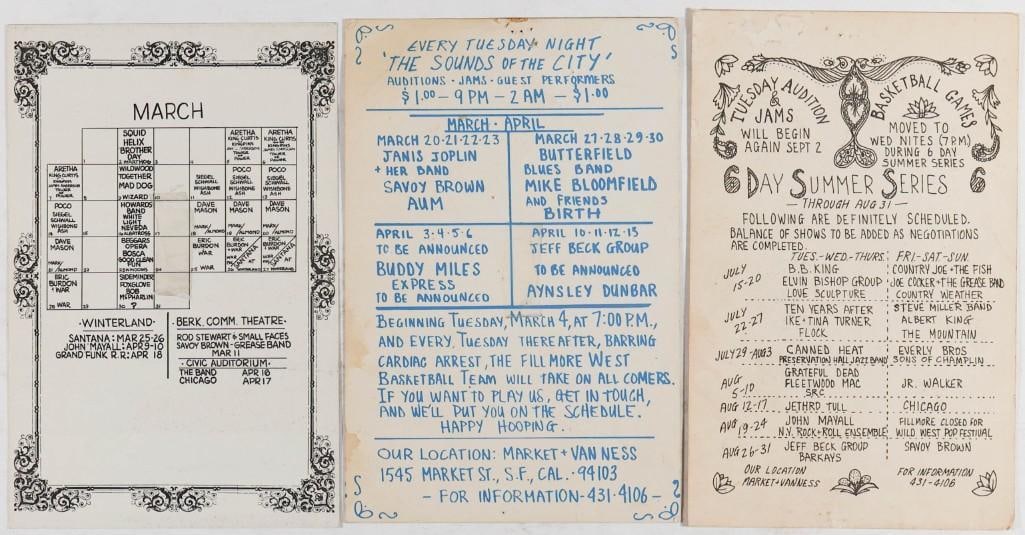 MARCH
SQUID
HELIX
BROTHER
DAY
2 MARTHOS
ARETHA
KING CURTIS
KINGPINS
TOWER
OF
POWER
ARETHA
KING CURTIS
KINGPINS
TOWER
OF
POWER
1
3
4
5
6
ARETHA
KING CURTIS
KINGPINS
TOWER
POWER
7
8
WILDWOOD
TOGETHER
MAD DOG
9 WIZARD
10
SIEGEL
SCHWALL
WISHBONE
ASH
POCO
SIEGEL
SCHWALL
WISHBONE
ASH
POCO
SIEGEL
SCHWALL
WISHBONE
ASH
POCO
SIEGEL
SCHWALL
WISHBONE
ASH
HOWARDS
BAND
WHITE
LIGHT
NEVADA
ALBATROSS
DAVE
MASON
MARK/ALMOND
DAVE
MASON
MARK/ALMOND
DAVE
MASON
MARK/ALMOND
DAVE
MASON
MARK/ALMOND
BEGGARS
OPERA
BOSCA
GOOD CLEAN
FUN
WINDOWS
ERIC
BURDON
+ WAR
ERIC
BURDON
+ WAR
SANTANA
ERIC
BURDON
+ WAR
SANTANA
ERIC
BURDON
+ WAR
28 WAR
SIDEMINDER
FOXGLOVE
BOB
McPHARLIN
30 ?
WINTERLAND
SANTANA: MAR 25-26
JOHN MAYALL: APR 9-10
GRAND FUNK R.R: APR 18
BERK. COMM. THEATRE:
ROD STEWART & SMALL FACES
SAVOY BROWN - GREASE BAND
MAR 11
CIVIC AUDITORIUM
THE BAND APR 16
CHICAGO APR 17
EVERY TUESDAY NIGHT
'THE SOUNDS OF THE CITY'
AUDITIONS · JAMS · GUEST PERFORMERS
$1.00 — 9 PM — 2 AM — $1.00
MARCH · APRIL
MARCH 20-21-22-23
JANIS JOPLIN
+ HER BAND
SAVOY BROWN
AUM
MARCH · 27 · 28 · 29 · 30
BUTTERFIELD
BLUES BAND
MIKE BLOOMFIELD
AND FRIENDS
BIRTH
APRIL 3-4-5-6
TO BE ANNOUNCED
BUDDY MILES
EXPRESS
TO BE ANNOUNCED
APRIL 10-11-12-13
JEFF BECK GROUP
TO BE ANNOUNCED
AYNSLEY DUNBAR
BEGINNING TUESDAY, MARCH 4, AT 7:00 P.M.,
AND EVERY TUESDAY THEREAFTER, BARRING
CARDIAC ARREST, THE FILLMORE WEST
BASKETBALL TEAM WILL TAKE ON ALL COMERS.
IF YOU WANT TO PLAY US, GET IN TOUCH,
AND WE'LL PUT YOU ON THE SCHEDULE.
HAPPY HOOPING.
OUR LOCATION: MARKET + VAN NESS
1545 MARKET ST., S.F., CAL. - 94103
— FOR INFORMATION - 431-4106 —
TUESDAY AUDITION
& JAMS
WILL BEGIN
AGAIN SEPT 2
BASKETBALL GAMES
MOVED TO
WED NITES (7PM)
DURING 6 DAY
SUMMER SERIES
6 DAY SUMMER SERIES 6
— THROUGH AUG 31 —
FOLLOWING ARE DEFINITELY SCHEDULED.
BALANCE OF SHOWS TO BE ADDED AS NEGOTIATIONS
ARE COMPLETED.
TUES.-WED-THURS: FRI-SAT-SUN.
JULY
15-20
B.B. KING
ELVIN BISHOP GROUP
LOVE SCULPTURE
COUNTRY JOE + THE FISH
JOE COCKER + THE GREASE BAND
COUNTRY WEATHER
JULY
22-27
TEN YEARS AFTER
IKE + TINA TURNER
FLOCK
STEVE MILLER BAND
ALBERT KING
THE MOUNTAIN
JULY 29 - AUG 3
CANNED HEAT
PRESERVATION HALL JAZZ BAND
EVERLY BROS
SONS OF CHAMPLIN
AUG
5-10
GRATEFUL DEAD
FLEETWOOD MAC
SRC
JR. WALKER
AUG 12-17
JETHRO TULL
CHICAGO
AUG 19-24
JOHN MAYALL
N.Y. ROCK + ROLL ENSEMBLE
FILLMORE CLOSED FOR
WILD WEST POP FESTIVAL
AUG 26-31
JEFF BECK GROUP
BARKAYS
SAVOY BROWN
OUR LOCATION
MARKET + VANNESS
FOR INFORMATION
431-4106